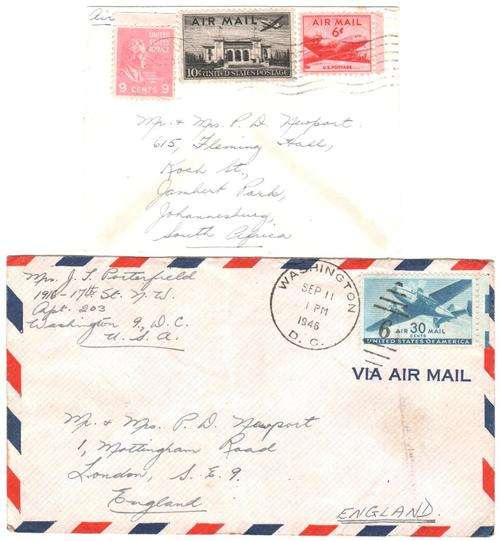 Air
UNITED
STATES
POSTAGE
9 CENTS 9
AIR MAIL
10¢ UNITED STATES POSTAGE
AIR MAIL
6¢
U.S. POSTAGE
Mr. & Mrs P. D. Newport.
615, Fleming Hall,
Koch St,
Joubert Park,
Johannesburg,
South Africa
Mrs. J. T. Porterfield
1916-17th St. N. W.
Apt. 203
Washington 9, D.C.
U.S.A.
WASHINGTON
SEP 11
1 PM
1946
D. C.
6
AIR 30 MAIL
CENTS
UNITED STATES OF AMERICA
VIA AIR MAIL
Mr. & Mrs. P. D. Newport
1, Mottingham Road
London, S. E. 9.
England
ENGLAND.